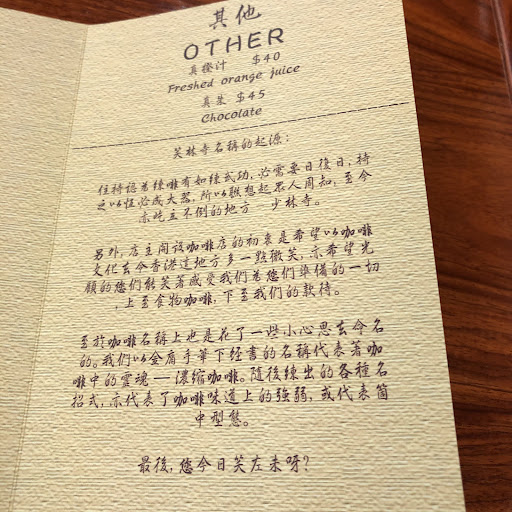 其他
OTHER
真橙汁 $40
Freshed orange juice
真朱 $45
Chocolate
笑林寺名稱的起源:
住持認為練啡有如練武功,必需要日復日,持
之以恆必成大器,所以聯想起眾人周知,至今
亦屹立不倒的地方 少林寺。
另外,店主開設咖啡店的初衷是希望以咖啡
文化去令香港這地方多一點微笑,亦希望光
顧的您們能笑著感受我們為您們準備的一切
,上至食物咖啡,下至我們的款待。
至於咖啡名稱上也是花了一些小心思去命名
的。我們以金庸手筆下經書的名稱代表著咖
啡中的靈魂——濃縮咖啡。隨後練出的各種名
招式,亦代表了咖啡味道上的強弱,或代表箇
中型態。
最後,您今日笑左未呀?